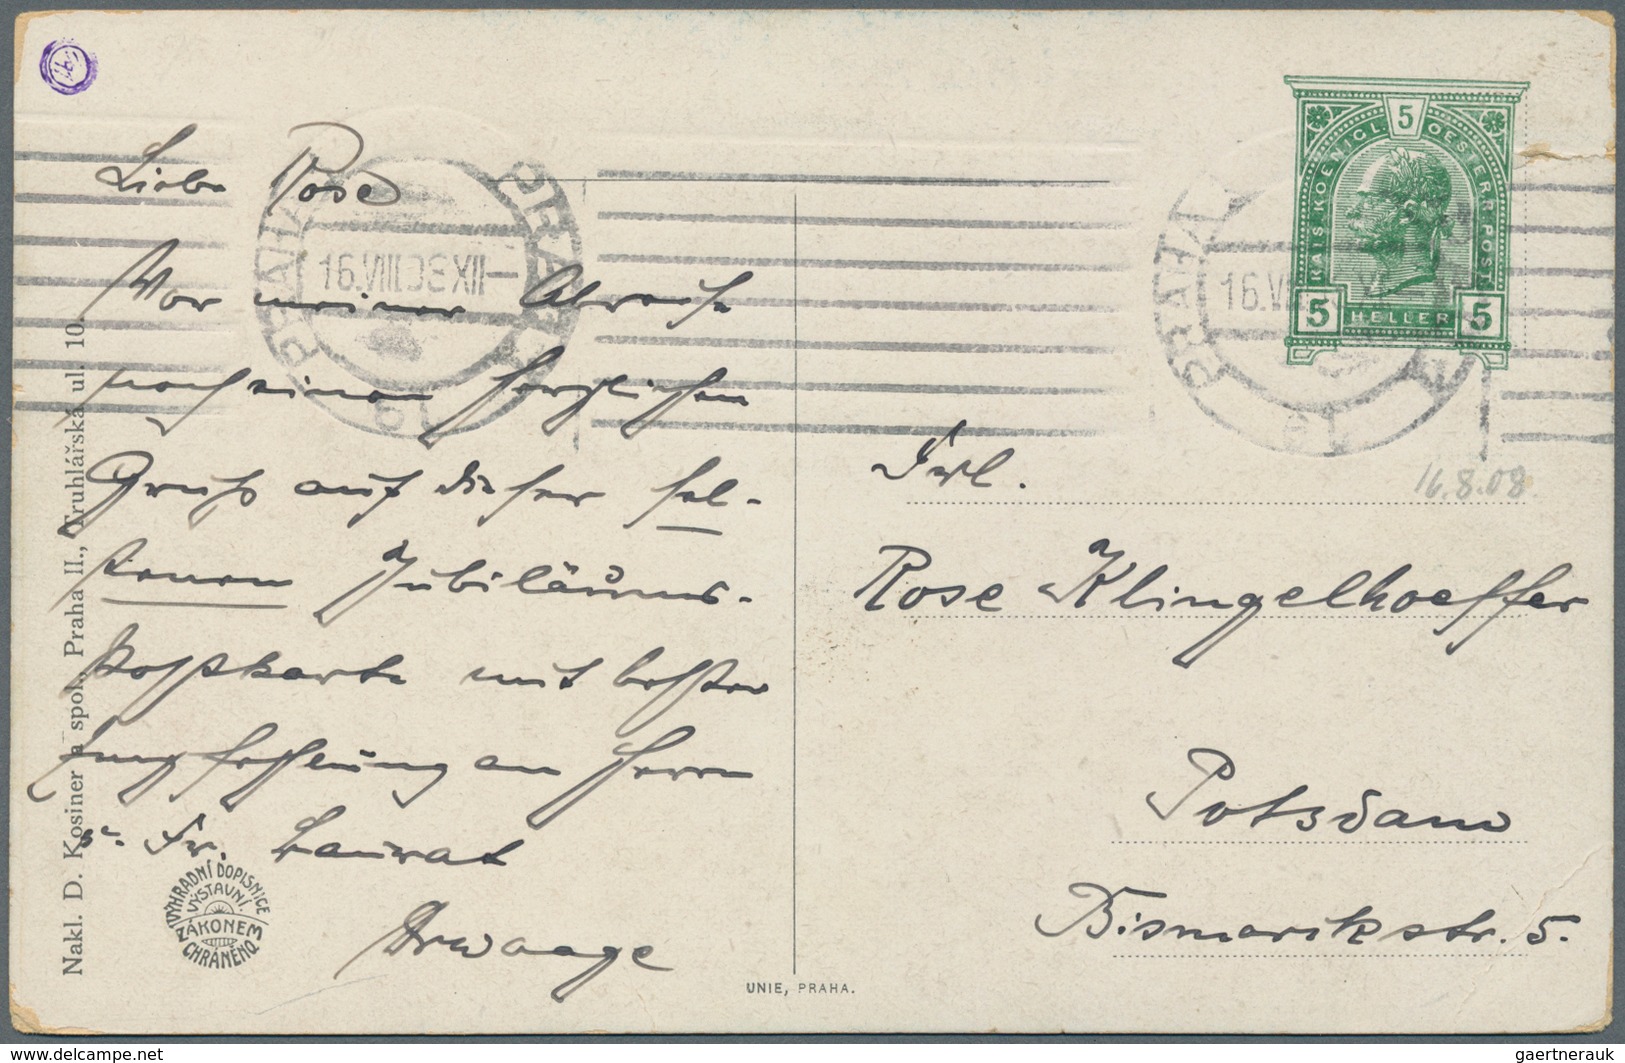 Liebe Rose
Vor meiner Abreise
noch einen herzlichen
Gruß auf dieser sel-
tenen Jubiläums-
postkarte mit besten
Empfehlung an Herrn
Fr.
Nakl. D. Kosiner a spol. Praha II., Truhlářská ul. 10.
VÝHRADNÍ DOPISNICE
VÝSTAVNÍ.
ZÁKONEM
CHRÁNĚNO.
UNIE, PRAHA.
PRAHA PRAG
16.VIII.08 XII
KAIS. KOENIGL. OESTERR. POST
5
5 HELLER 5
PRAHA
16.VI
16.8.08.
Frl.
Rose Klingelhoeffer
Potsdam
Bismarckstr. 5.
www.delcampe.net
gaertnerauk